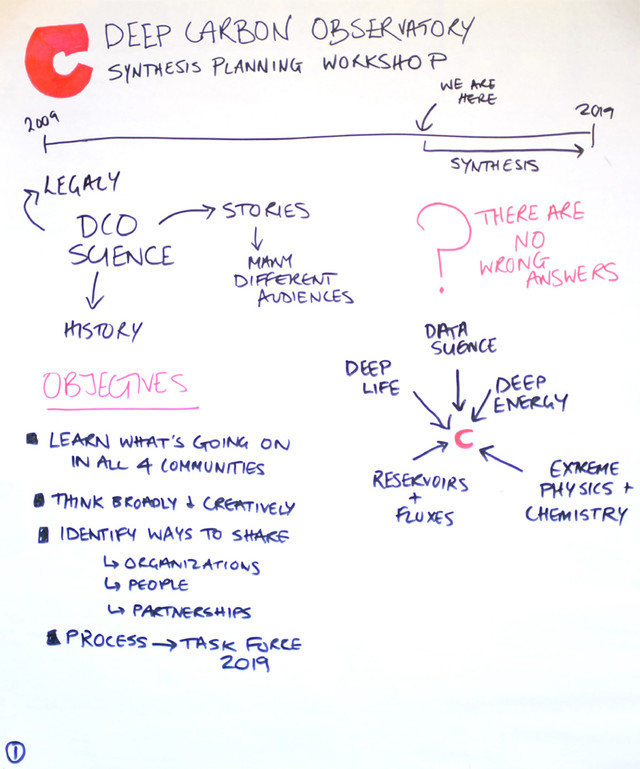 C
DEEP CARBON OBSERVATORY
SYNTHESIS PLANNING WORKSHOP
WE ARE
HERE
2009
2019
SYNTHESIS
LEGACY
DCO
SCIENCE
STORIES
MANY
DIFFERENT
AUDIENCES
HISTORY
?
THERE ARE
NO
WRONG
ANSWERS
OBJECTIVES
LEARN WHAT'S GOING ON
IN ALL 4 COMMUNITIES
THINK BROADLY & CREATIVELY
IDENTIFY WAYS TO SHARE
↳ ORGANIZATIONS
↳ PEOPLE
↳ PARTNERSHIPS
PROCESS → TASK FORCE
2019
DATA
SCIENCE
DEEP
LIFE
DEEP
ENERGY
C
RESERVOIRS
+
FLUXES
EXTREME
PHYSICS +
CHEMISTRY
1